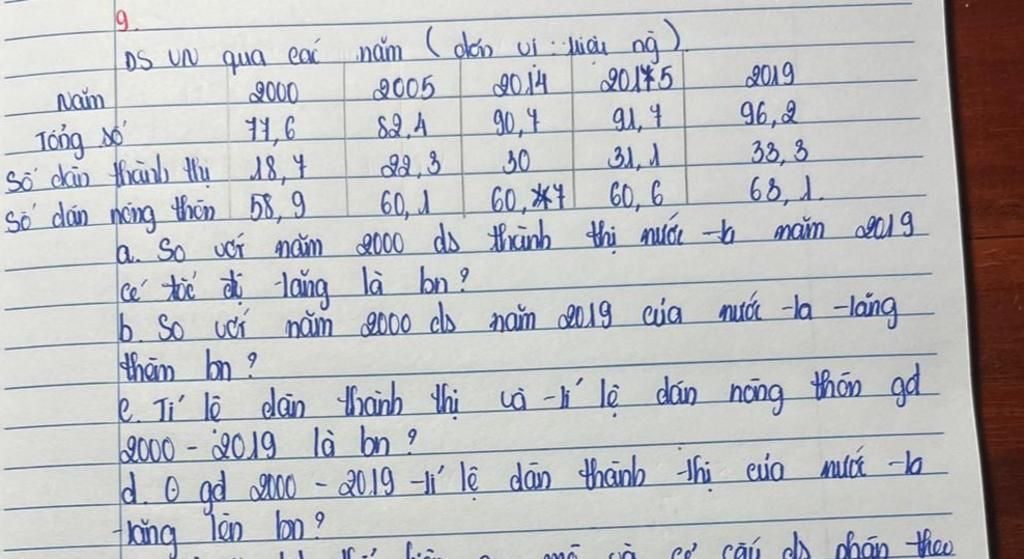 9.
DS VN qua các năm (đơn vị: triệu ng)
Năm 2000 2005 2014 2015 2019
Tổng số 77,6 82,4 90,7 91,7 96,2
Số dân thành thị 18,7 22,3 30 31,1 33,3
Số dân nông thôn 58,9 60,1 60,7 60,6 63,1.
a. So với năm 2000 ds thành thị nước ta năm 2019
có tốc độ tăng là bn?
b. So với năm 2000 ds năm 2019 của nước ta tăng
thêm bn?
c. Tỉ lệ dân thành thị và tỉ lệ dân nông thôn gđ
2000 - 2019 là bn?
d. Ở gđ 2000 - 2019 tỉ lệ dân thành thị của nước ta
tăng lên bn?
cơ cấu ds phân theo